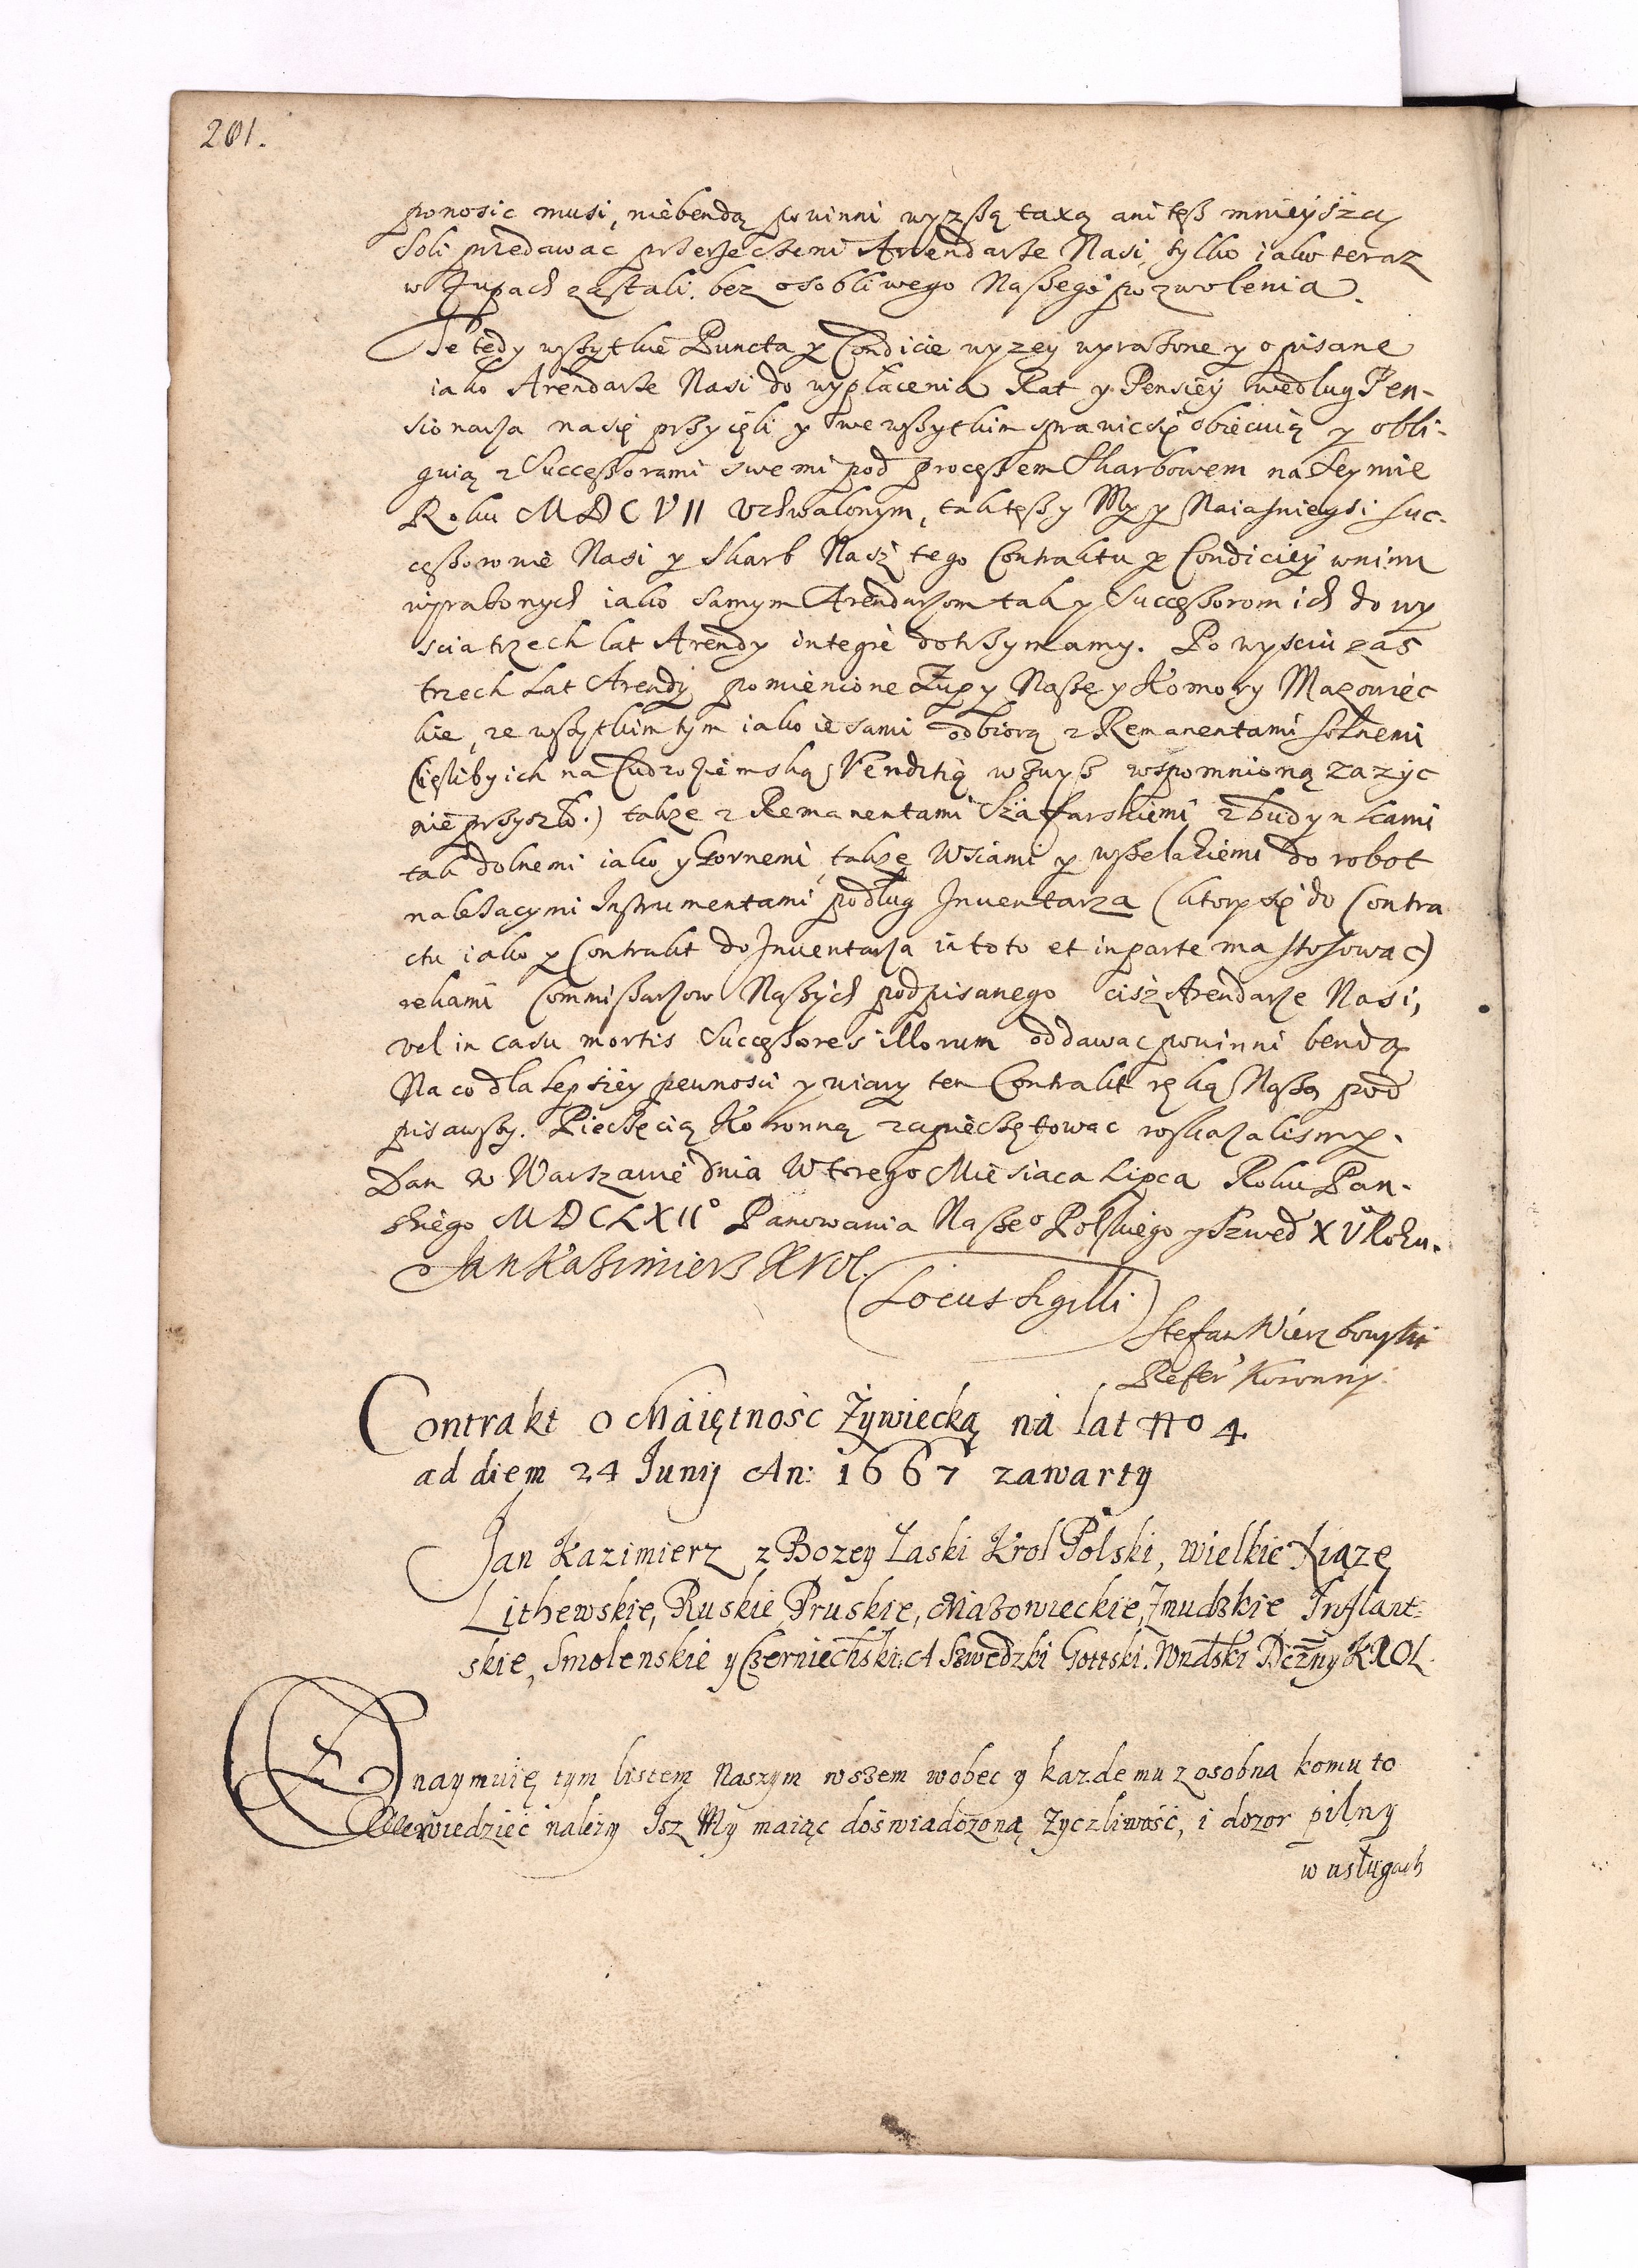 201.
ponosic musi, niebendą powinni wyzßą taxą ani teß mnieysżą
Soli przedawac przerzeczeni Arendarze Nasi, tylko iako teraz
w Zupach zastali. bez osobliwego Naßego pozwolenia.
Te tedy wßytkie Puncta y Condicie wyzey wyrażone y opisane
iako Arendarze Nasi do wypłacenia Rat y Pensiey według Pen-
sionarza nasię przyięli y we wßytkim sprawic się obiecuią y obli-
guią z Successorami swemi pod processem Skarbowem na Seymie
Roku MDCVII Uchwalonym, takteß y My y Naiasnieysi Suc-
ceßorowie Nasi y Skarb Nasz tego Contraktu y Condiciey wnim
wyrażonych iako samym Arendarzom tak y Succeßorom ich do wy
scia trzech lat Arendy integre dotrzymamy. Po wysciu zaś
trzech Lat Arendy pomienione Żupy Naße y Komory Mazowiec
kie, ze wßytkim tym iako ie sami odbiorą z Remanentami solnemi
(iesliby ich na Cudzoziemską Venditią wzwyß wspomnioną zazyc
nie przyszło.) takze z Remanentami Szafarskiemi z budynkami
tak dolnemi iako y Gornemi, takze Wsiami y wßelakiemi do robot
nalezacymi Instrumentami podług Inuentarza (ktory się do Contra
ctu iako y Contrakt do Inuentarza in toto et in parte ma stosowac)
rekami Commißarzow Naßych podpisanego cisz Arendarze Nasi,
vel in casu mortis Succeßores illorum oddawac powinni bendą
Na co dla lepsiey pewnosci y wiary ten Contrakt ręką Naßą pod
pisawßy. Pieczęcią Koronną zapieczętowac roskazalismy.
Dan w Warszawie dnia Wtorego Miesiaca Lipca Roku Pan-
skiego MDCLXIIº Panowania Naßeº Polskiego y Szwed XV Roku.
Jan Kazimierz Krol.
(Locus Sigilli)
Stefan Wierzbowski
Refer Koronny.
Contrakt o Maiętnosc Żywiecką na lat no 4.
ad diem 24 Junij An: 1667 zawarty
Jan Kazimierz z Bozey Łaski Krol Polski, Wielkie Xiązę
Lithewskie, Ruskie Pruskie, Mazowieckie, Zmudzkie Inflant-
skie, Smolenskie y Czerniechski: A Szwedzki Gottski. Wndski Dczny KROL.
Znaymuię tym listem Naszym wszem wobec y kazdemu zosobna komu to
wiedzieć nalezy Isz My maiąc doświadczoną Zyczliwość, i dozor pilny
w usługach